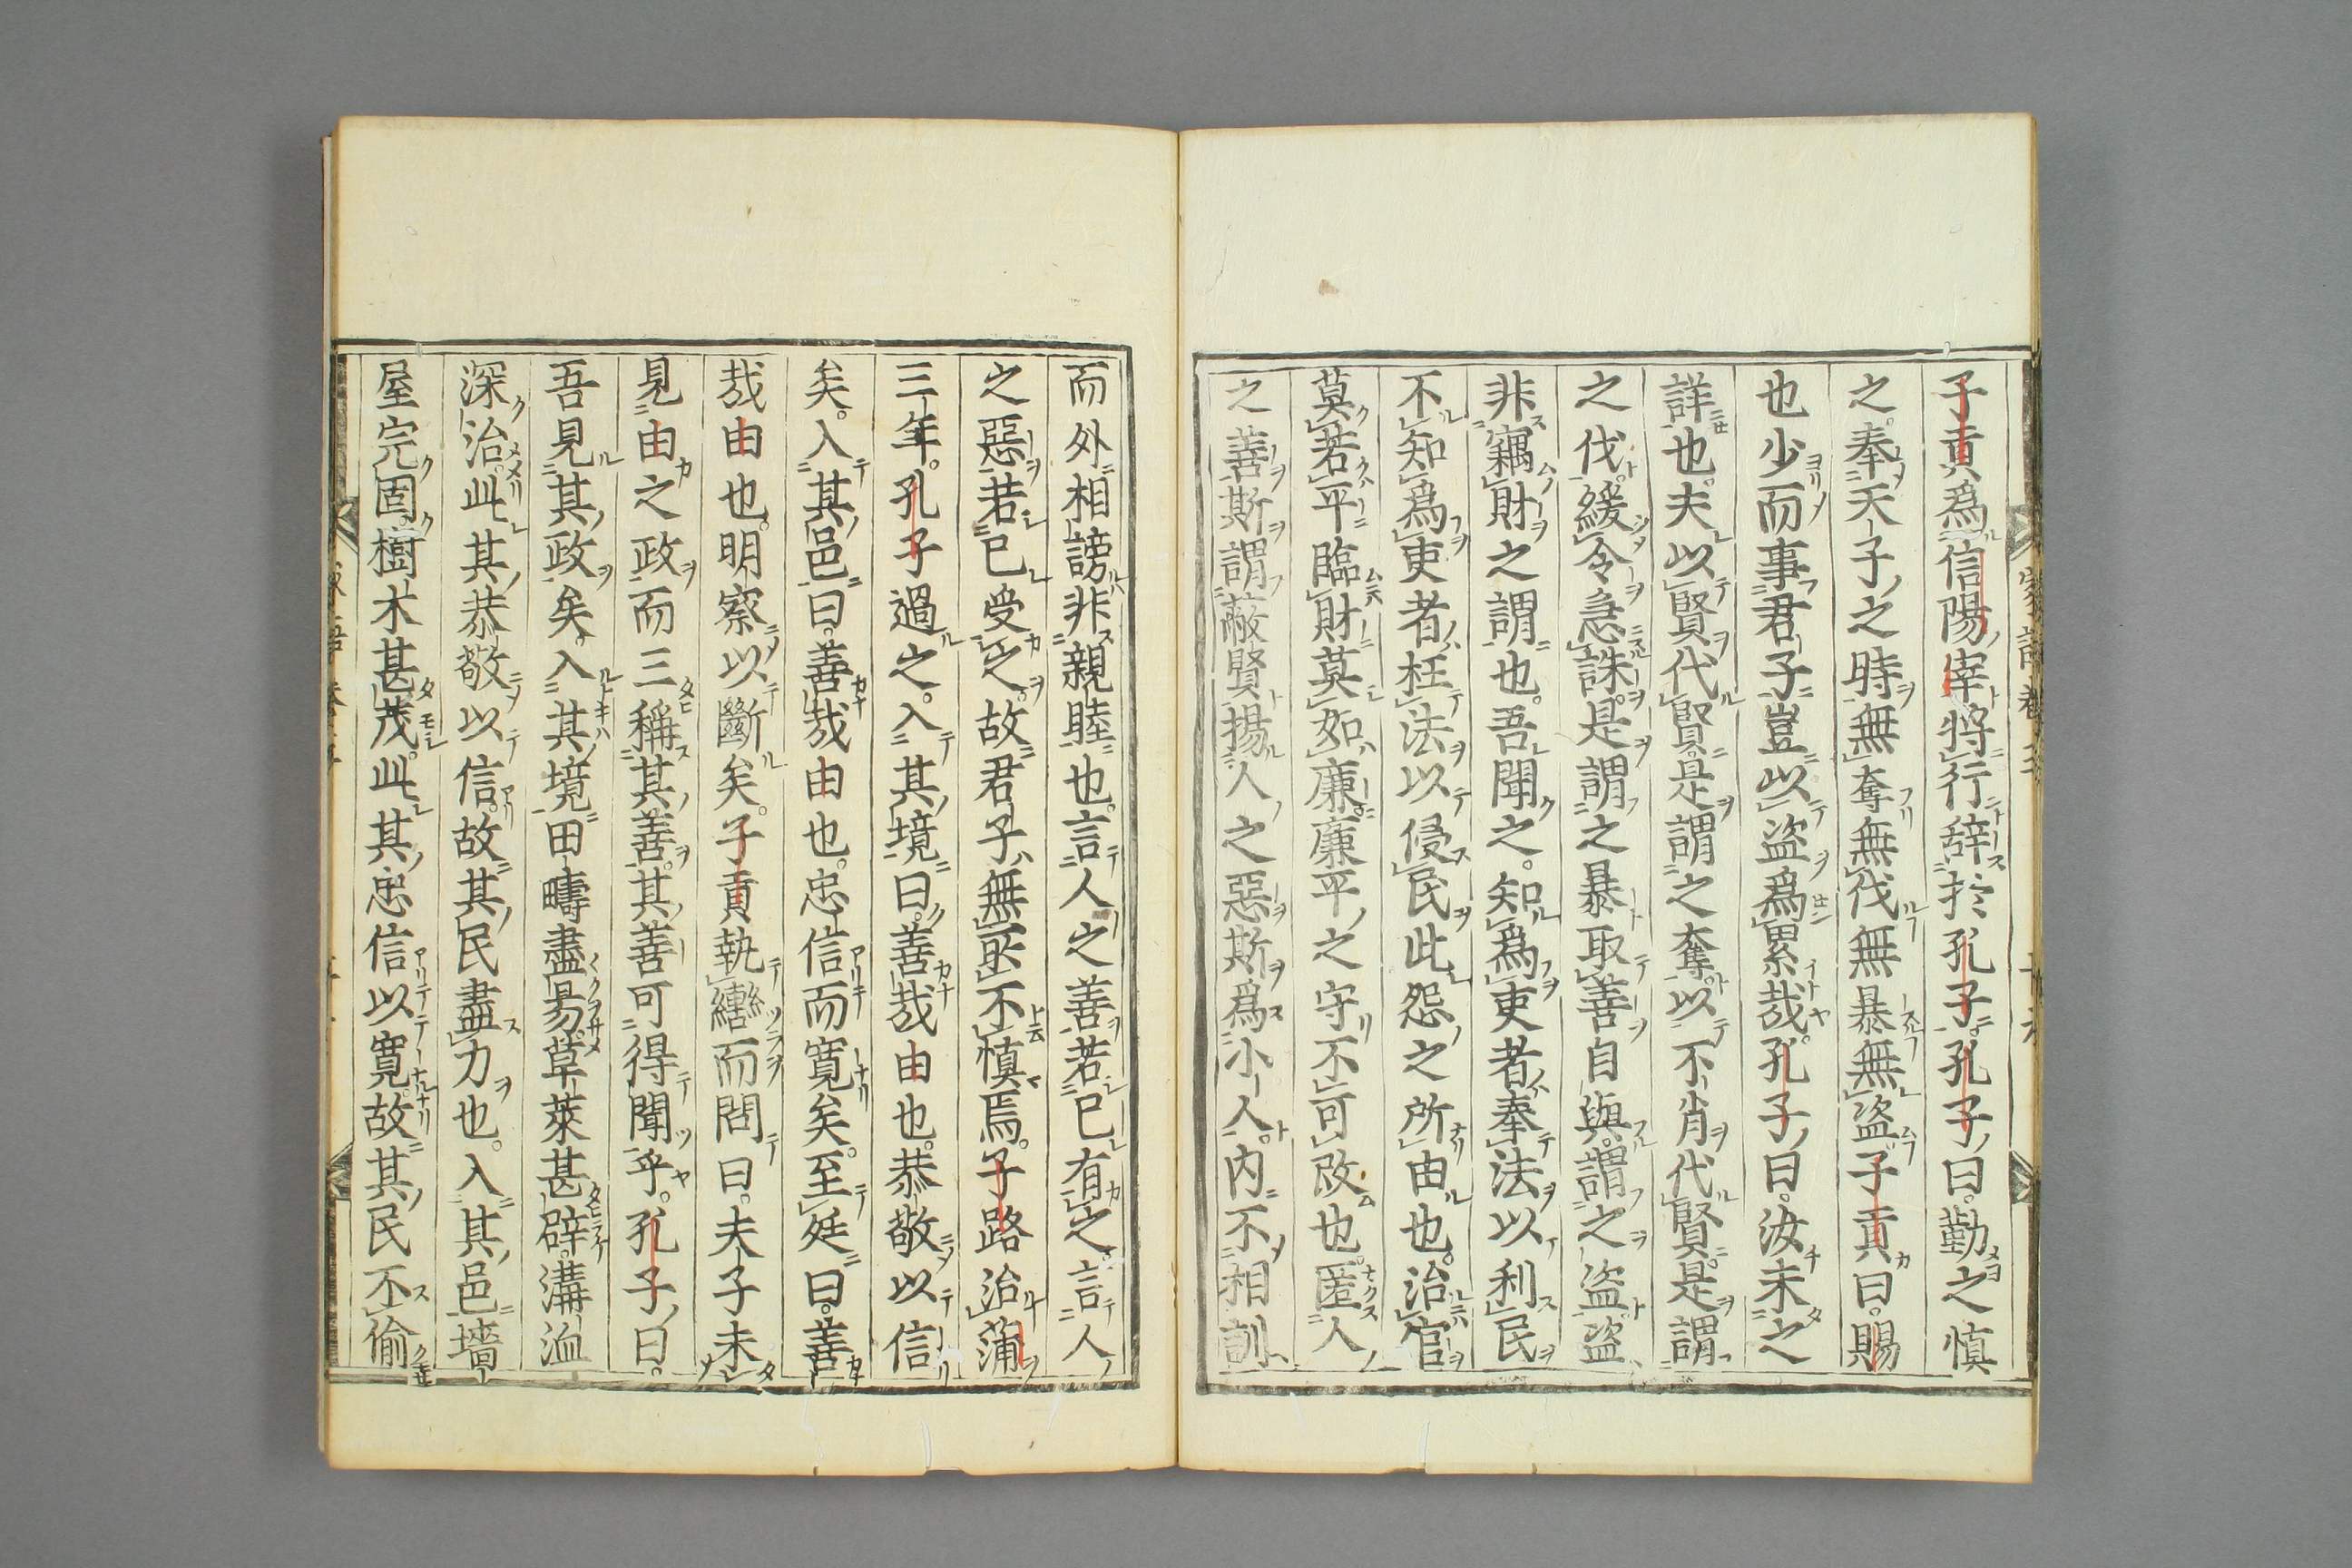 子貢爲信陽宰將行辭於孔子孔子曰勤之慎
之奉天子之時無奪無伐無暴無盜子貢曰賜
也少而事君子豈以盜爲累哉孔子曰汝未之
詳也夫以賢代賢是謂之奪以不肖代賢是謂
之伐緩令急誅是謂之暴取善自與謂之盜盜
非竊財之謂也吾聞之知爲吏者奉法以利民
不知爲吏者枉法以侵民此怨之所由也治官
莫若平臨財莫如廉廉平之守不可改也匿人
之善斯謂蔽賢揚人之惡斯爲小人內不相訓
而外相謗非親睦也言人之善若已有之言人
之惡若已受之故君子無所不慎焉子路治蒲
三年孔子過之入其境曰善哉由也恭敬以信
矣入其邑曰善哉由也忠信而寬矣至廷曰善
哉由也明察以斷矣子貢執轡而問曰夫子未
見由之政而三稱其善其善可得聞乎孔子曰
吾見其政矣入其境田疇盡易草萊甚辟溝洫
深治此其恭敬以信故其民盡力也入其邑墻
屋完固樹木甚茂此其忠信以寬故其民不偷